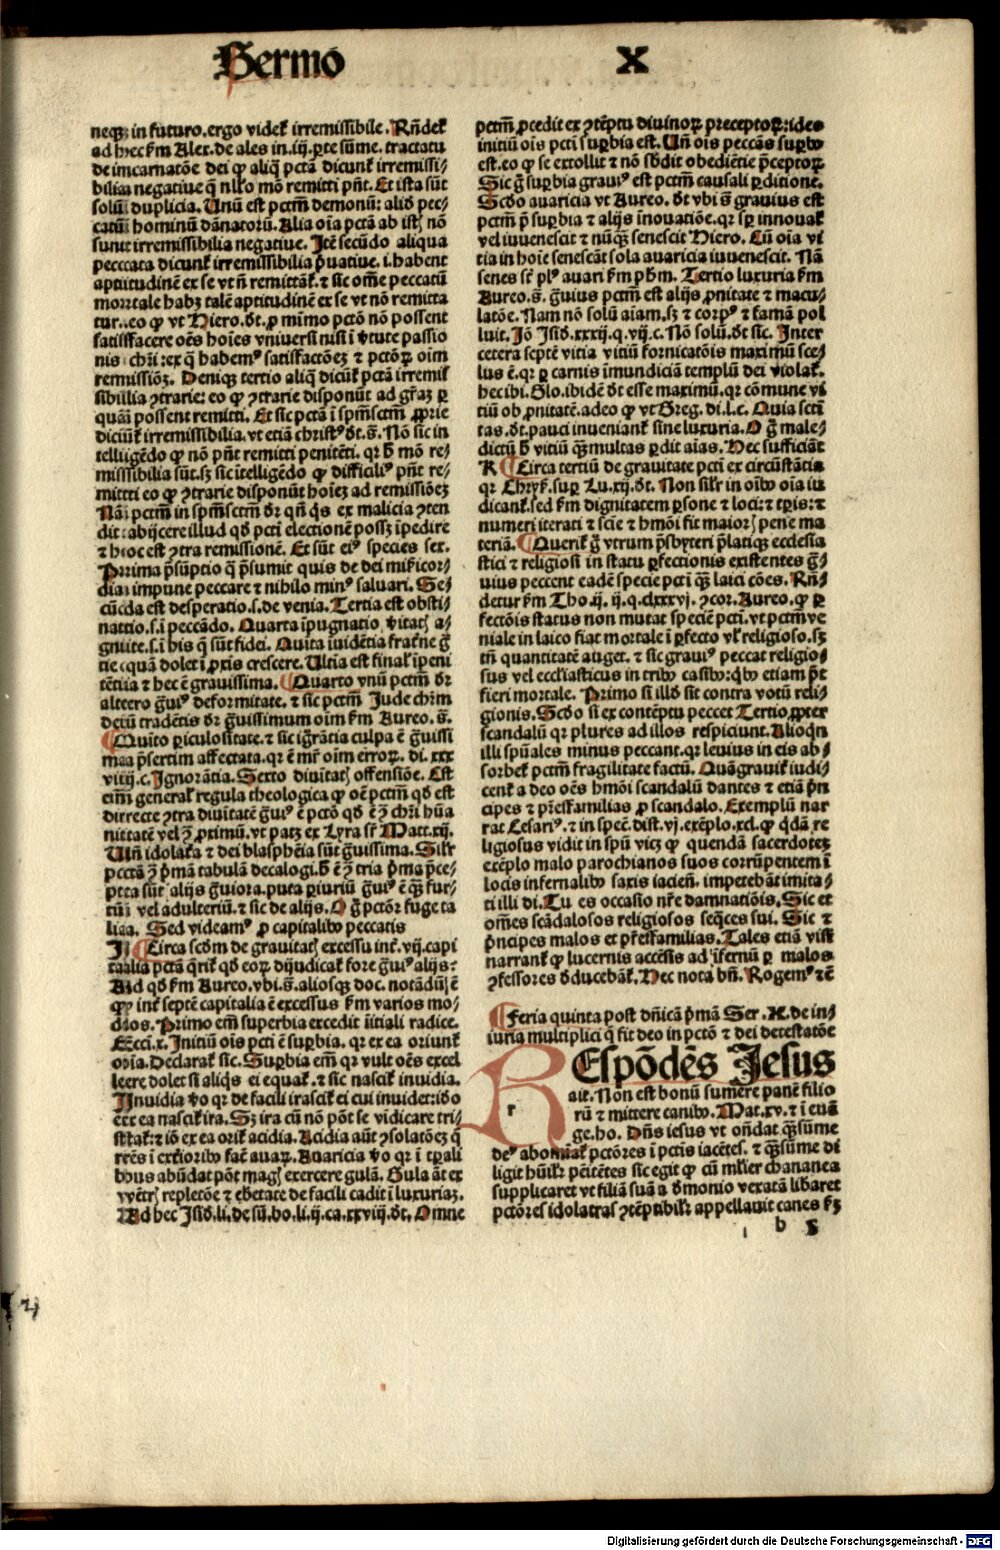 Sermō X
neqȝ in futuro.ergo videt᷑ irremissibile. Rn̄det᷑
ad hec ẜm Alex.de ales in.iij.ꝑte sūme. tractatu
de incarnatōe dei ꝙ aliq̄ pctā dicunt᷑ irremissi⸗
bilia negatiue q̄ nllo mō remitti pn̄t. Et ista sūt
solū duplicia. Unū est pctm̄ demonū: aliđ pec⸗
catū hominū dānatorū. Alia oīa pctā ab istꝭ nō
sunt irremissibilia negatiue. Itē secūdo aliqua
pecccata dicunt᷑ irremissibilia p̄uatiue. i.habent
aptitudinē ex se vt n̄ remittāt᷑. ⁊ sic om̄e peccatū
mortale habȝ talē aptitudinē ex se vt nō remitta
tur..eo ꝙ vt Hiero.đt.ꝓ mīmo pctō nō possent
satisffacere oēs hoīes vniuersi nisi ī v̄tute passio
nis chr̄i:ex q̄ habemꝰ satisfactōeȝ ⁊ pctōꝝ oīm
remissiōȝ. Deniqȝ tertio aliq̄ dicūt᷑ pctā irremis
sibiilia ꝯtrarie: eo ꝙ ꝯtrarie disponūt ad gr̄aȝ ꝑ
quā possent remitti. Et sic pctā ī spm̄sctm̄ ꝓprie
dicūt᷑ irremissibilia. vt etiā christꝰ đt.s̄. Nō sic in
telligēdo ꝙ nō pn̄t remitti penitēti. qꝛ b̄ mō re⸗
missibilia sūt.sȝ sic ītelligēdo ꝙ difficiliꝰ pn̄t re⸗
mitti eo ꝙ ꝯtrarie disponūt hoīeȝ ad remissiōeȝ
Nā pctm̄ in spm̄sctm̄ đr qn̄ q̄s ex malicia ꝯten
dit abijcere illud qđ pcti electionē possȝ īpedire
⁊ hoc est ꝯtra remissionē. Et sūt eiꝰ species sex.
Prima p̄sūptio q̄ p̄sumit quis de dei mīẜicor⸗
dia impune peccare ⁊ nihilo minꝰ saluari. Se⸗
cūda est desperatio.s.de venia. Tertia est obsti⸗
natio.s.ī peccādo. Quarta īpugnatio v̄itatꝭ a⸗
gnite.s.ī his q̄ sūt fidei. Quita īuidētia frat̄ne ḡ
tie quā dolet ī ꝓxīs crescere. Ultīa est final᷑ īpeni
tētia ⁊ hec ē grauissima. Quarto vnū pctm̄ đr
altero ḡuiꝰ deformitate. ⁊ sic pctm̄ Jude chr̄m
deū tradētis đr ḡuissimum oīm ẜm Aureo. s̄.
Quīto ꝑiculositate.⁊ sic igr̄atia culpa ē ḡuissi
ma p̄sertim affectata.qꝛ ē mr̄ oīm erroꝝ. di. xxx
viij.c.Ignorātia. Sexto diuītatꝭ offensiōe. Est
eīm general᷑ regula theologica ꝙ oē pctm̄ qđ est
directe ꝯtra diuītatē ḡuiꝰ ē pctō qđ ē ꝯ chr̄i hūa
nitatē vel ꝯ ꝓximū.vt patȝ ex Lyra sr̄ Matt.xij.
Uñ idolatria ⁊ dei blasphēia sūt ḡuissima. Silr̄
pccta ꝯ p̄mā tabulā decalogi.b̄ ē ꝯ tria p̄ma p̄ce⸗
pta sūt alijs ḡuiora.puta ꝑiuriū ḡuiꝰ ē q̄ȝ fur⸗
tū vel adulteriū.⁊ sic de alijs. O ḡ pctōr fuge ta
lia. Sed videamꝰ ꝓ capitalibꝰ peccatis
II Circa scđm de grauitatꝭ excessu int᷑.vij.capi
talia pctā q̄rit᷑ qđ eoꝝ dijudicat᷑ fore ḡuiꝰ alijs:
Ad qđ ẜm Aureo.vbi.s̄.aliosqȝ doc. notādū ē
ꝙ int᷑ septē capitalia ē excessus ẜm varios mo⸗
dos. Primo em̄ superbia excedit īitiali radice.
Ecci.x. Initiū oīs pcti ē suꝑbia. qꝛ ex ea oriunt᷑
oīa.Declarat᷑ sic. Suꝑbia em̄ qꝛ vult oēs excel
lere dolet si aliq̄s ei equat᷑. ⁊ sic nascit᷑ inuidia.
Inuidia v̄o qꝛ de facili irascit᷑ ei cui inuidet:iđo
ex ea nascit᷑ ira. Sȝ ira cū nō pōt se vīdicare tri⸗
stat᷑:⁊ iō ex ea orit᷑ acidia. Acidia aūt ꝯsolatōeȝ q̄
rēs ī exteriorībꝰ facit auaꝝ. Auaricia v̄o qꝛ ī tꝑali
bus abūdat pōt magꝭ exercere gulā. Gula āt ex
vētrꝭ repletōe ⁊ ebetate de facili cadit ī luxuriaȝ.
Ad hec Isiđ.li.de sū.bo.li.ij.ca.xxviij.đt. Omne
pctm̄ ꝓcedit ex ꝯtēptu diuinoꝝ preceptoꝝ:ideo
initiū oīs pcti suꝑbia est. Uñ oīs peccās suꝑbꝰ
est.eo ꝙ se extollit ⁊ nō sb̄dit obediētie p̄ceptoꝝ
Sic ḡ suꝑbia grauiꝰ est pctm̄ causali ꝑditione.
Scđo auaricia vt Aureo. đt vbi s̄ grauius est
pctm̄ p̄ suꝑbia ⁊ alijs īnouatiōe.qꝛ sꝑ innouat᷑
vel iuuenescit ⁊ nūq̄ȝ senescit Hiero. Cū oīa vi
tia in hoīe senescāt sola auaricia iuuenescit. Nā
senes st̄ plꝰ auari ẜm pħm. Tertio luxuria ẜm
Aureo.s̄. ḡuius pctm̄ est alijs ꝓnitate ⁊ macu⸗
latōe. Nam nō solū aīam.sȝ ⁊ corpꝰ ⁊ famā pol
luit. Iō Isiđ.xxxij.q.vij.c. Nō solū.đt sic. Inter
cetera septē vitia vitiū fornicatōis maximū sce⸗
lus ē.qꝛ ꝑ carnis īmundiciā templū dei violat᷑.
hec ibi. Glo.ibidē đt esse maximū.qꝛ cōmune vi
tiū ob ꝓnitatē.adeo ꝙ vt Greg. di.l.c. Quia scti
tas.đt.pauci inueniunt᷑ sine luxuria. O ḡ male⸗
dictū b̄ vitiū q̄ȝ multas ꝑdit aīas. Hec sufficiāt
R Circa tertiū de grauitate pcti ex circūstātia
qꝛ Chryẜ.suꝑ Lu.xij.đt. Non silr̄ in oībꝰ oīa iu
dicant᷑.sed ẜm dignitatem ꝑsone ⁊ loci:⁊ tꝑis:⁊
numeri iterati ⁊ scīe ⁊ hmōi fit maiorꝭ pene ma
teriā. Querit᷑ ḡ vtrum p̄sbyteri p̄latiqȝ ecclesia
stici ⁊ religiosi in statu ꝑfectionis existentes ḡ⸗
uius peccent eadē specie pcti q̄ȝ laici cōes. Rn̄⸗
detur ẜm Tho.ij. ij.q.clxxxvj. ꝯcor.Aureo.ꝙ ꝑ
fectōis status non mutat speciē pcti.vt pctm̄ ve
niale in laico fiat mortale ī ꝑfecto vl᷑ religioso.sȝ
tn̄ quantitatē auget. ⁊ sic grauiꝰ peccat religio⸗
sus vel ecclīasticus in tribꝰ casibꝰ:qƀꝰ etiam p̄t
fieri mortale. Primo si illđ sit contra votū reli⸗
gionis. Scđo si ex contēptu peccet Tertio ꝓpter
scandalū qꝛ plures ad illos respiciunt. Alioq̄n
illi spūales minus peccant.qꝛ leuius in eis ab⸗
sorbet᷑ pctm̄ fragilitate factū. Quā grauit᷑ iudi⸗
cent᷑ a deo oēs hmōi scandalū dantes ⁊ etiā p̄n
cipes ⁊ pr̄esfamilias ꝓ scandalo. Exemplū nar
rat Cesariꝰ.⁊ in speč. dist.vj.exēplo.xcl.ꝙ qđā re
ligiosus vidit in spū viceȝ ꝙ quendā sacerdotez
exēplo malo parochianos suos corrūpentem ī
locis infernalibꝰ saxis iacien̄. impetebāt imita⸗
ti illi di. Tu es occasio nr̄e damnatiōis. Sic et
om̄es scādalosos religiosos seq̄ces sui. Sic ⁊
p̄ncipes malos et pr̄esfamilias. Tales etiā visi
narrant᷑ ꝙ lucernis accēsis ad īfernū ꝑ malos
ꝯfessores đducebāt᷑. Hec nota bn̄. Rogemꝰ ⁊c̄
Feria quinta post dn̄icā p̄mā Ser.X.de in⸗
iuria multiplici q̄ fit deo in pctō ⁊ dei detestatōe
REspōdēs Jesus
r
ait. Non est bonū sumere panē filio
rū ⁊ mittere canibꝰ. Mat.xv.⁊ ī euā
ge.ho. Dn̄s iesus vt on̄dat q̄ȝsūme
deꝰ abominat᷑ pctōres ī pctis iacētes. ⁊ q̄ȝsūme di
ligit hūilr̄ pēitētes sic egit ꝙ cū mlier chananea
supplicaret vt filiā suā a đmonio vexatā liƀaret
pctōres idolatras ꝯtēptibilr̄ appellauit canes ẜȝ
b 5